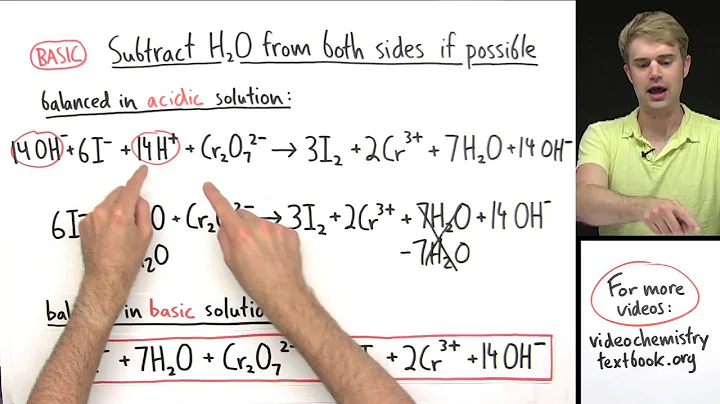 BASIC Subtract H₂O from both sides if possible
balanced in acidic solution:
14 OH⁻ + 6I⁻ + 14H⁺ + Cr₂O₇²⁻ → 3I₂ + 2Cr³⁺ + 7H₂O + 14 OH⁻
6I⁻ O + Cr₂ → 3I₂ + 2Cr³⁺ + 7H₂O + 14 OH⁻
₂O - 7H₂O
in basic
⁻ + 7H₂O + Cr₂O₇²⁻ + 2Cr³⁺ + 14 OH⁻
For more
videos:
videochemistry
textbook.org